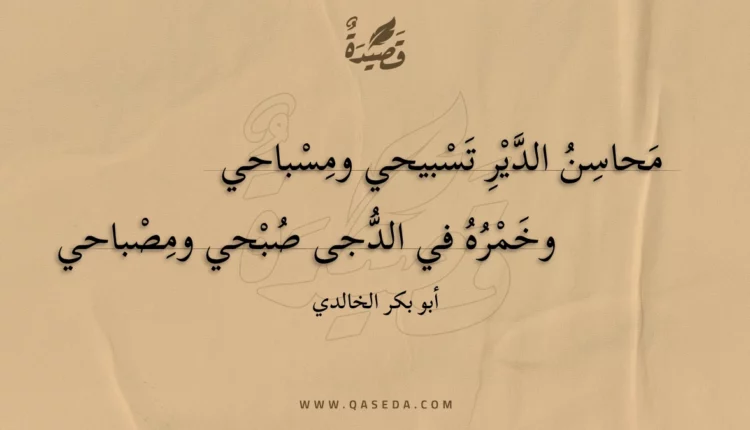 قَصِيدَةٌ
مَحاسِنُ الدَّيْرِ تَسْبيحي ومِسْباحي
وخَمْرُهُ في الدُّجى صُبْحي ومِصْباحي
أبو بكر الخالدي
WWW.QASEDA.COM